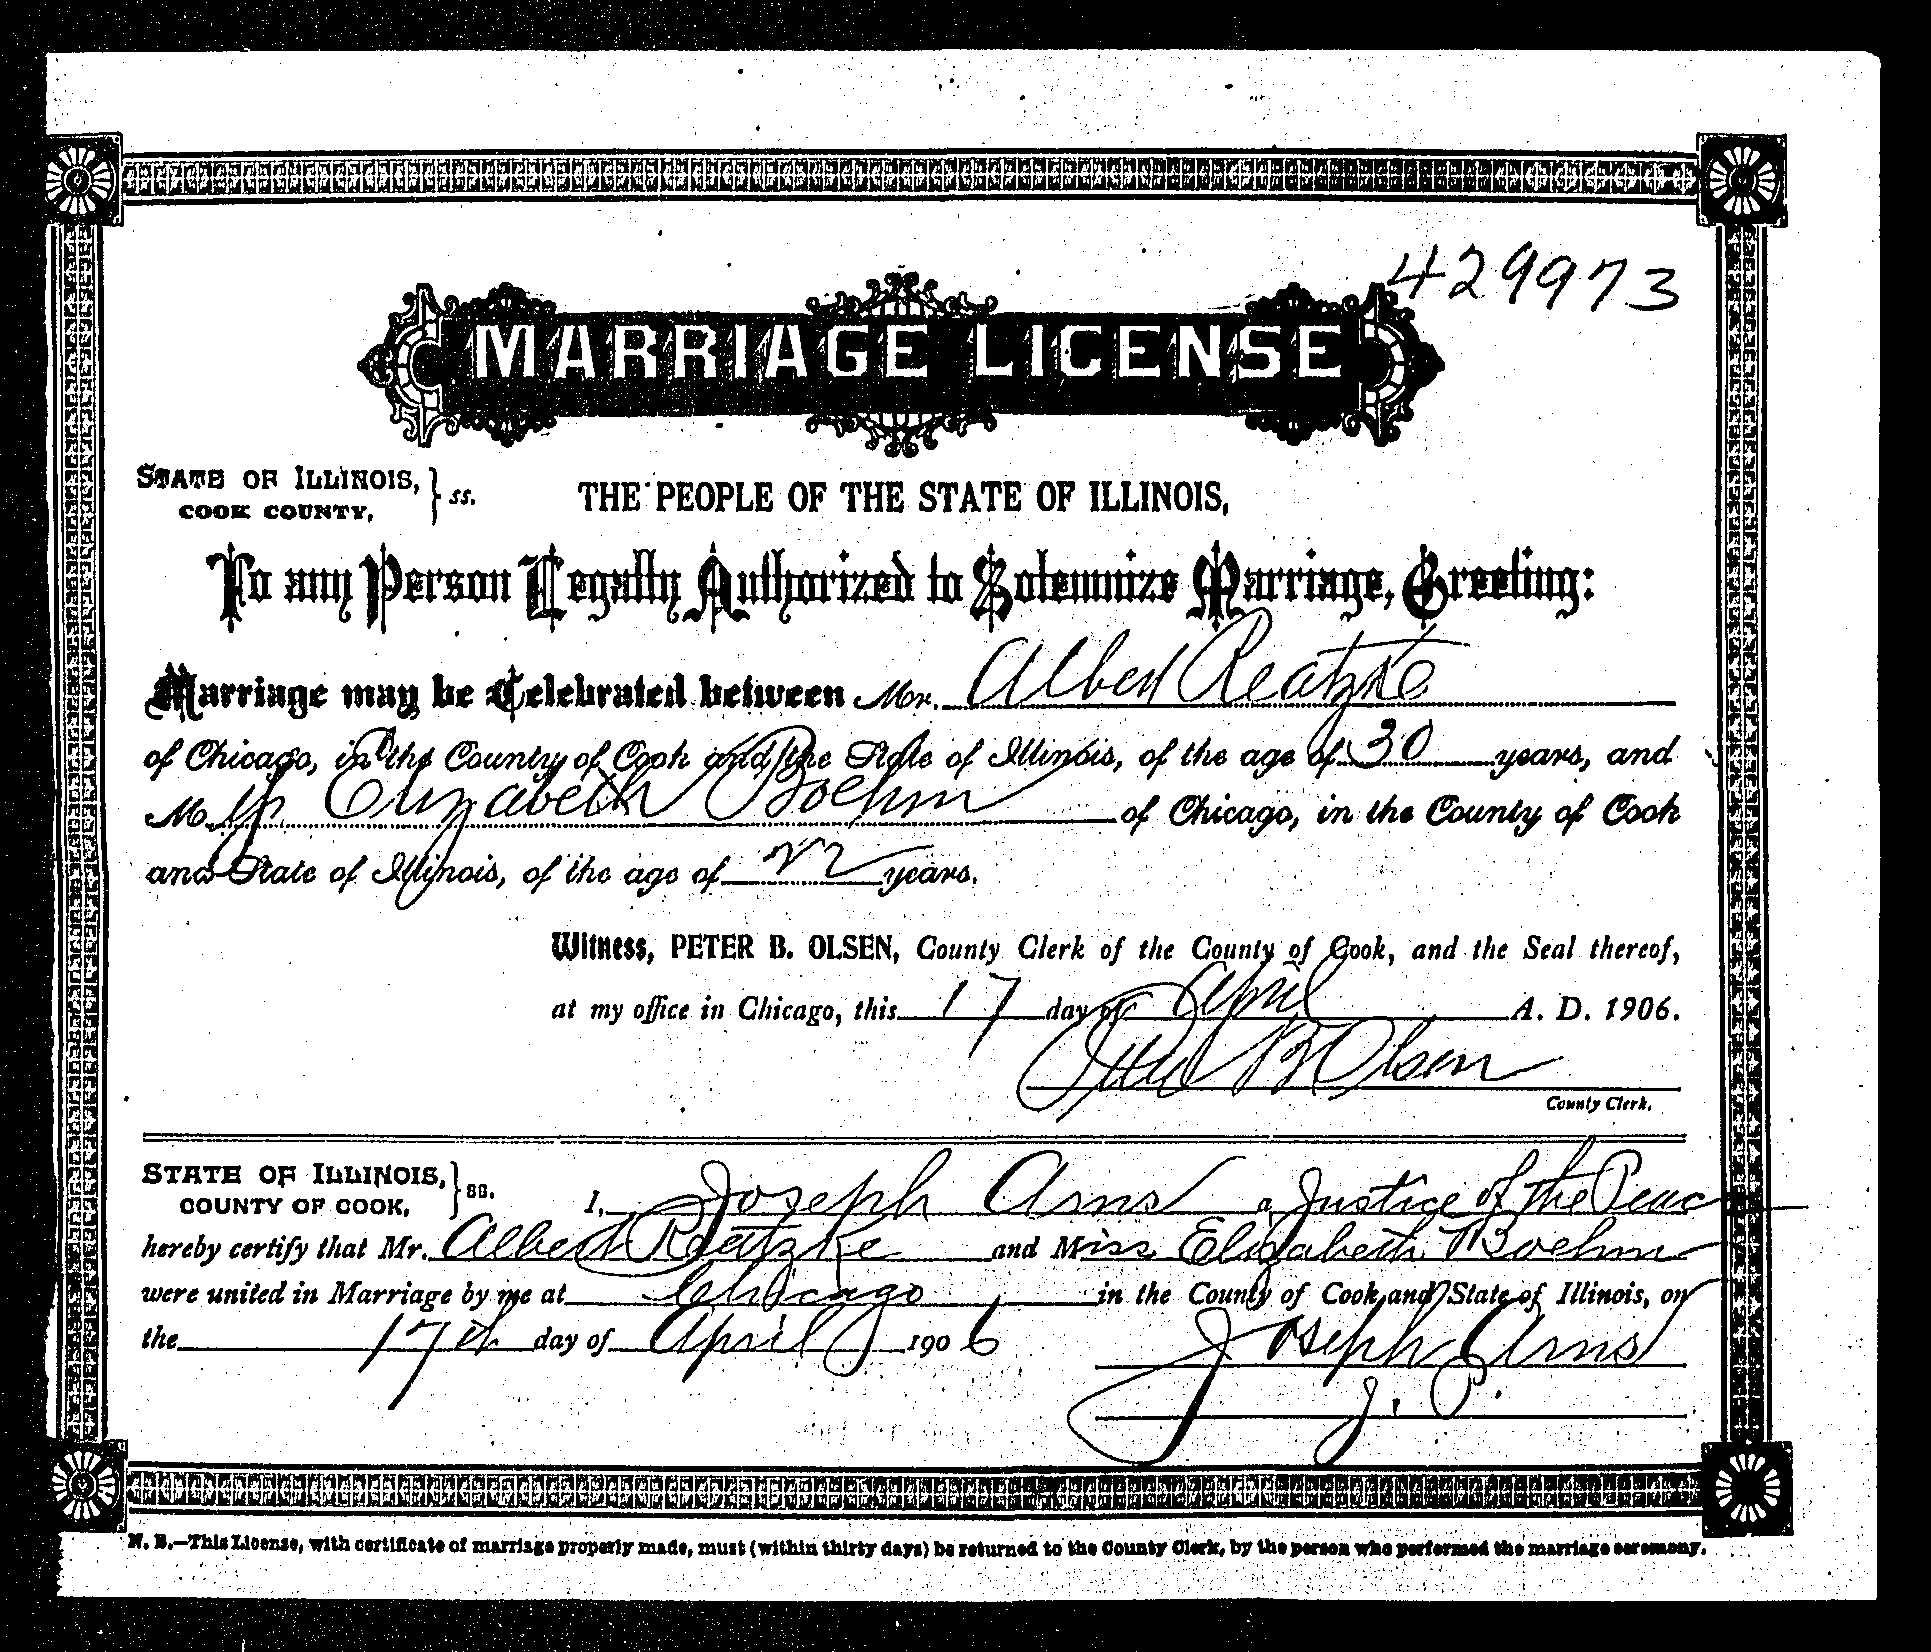 429973
MARRIAGE LICENSE
STATE OF ILLINOIS, } ss.
COOK COUNTY,
THE PEOPLE OF THE STATE OF ILLINOIS,
To any Person Legally Authorized to Solemnize Marriage, Greeting:
Marriage may be Celebrated between Mr. Albert Reatzke
of Chicago, in the County of Cook and the State of Illinois, of the age of 30 years, and
M Elizabeth Boehm of Chicago, in the County of Cook
and State of Illinois, of the age of 22 years.
Witness, PETER B. OLSEN, County Clerk of the County of Cook, and the Seal thereof,
at my office in Chicago, this 17 day of April A. D. 1906.
Peter B Olsen
County Clerk.
STATE OF ILLINOIS, } ss.
COUNTY OF COOK,
I, Joseph Arns a Justice of the Peac
hereby certify that Mr. Albert Reatzke and Miss Elizabeth Boehm
were united in Marriage by me at Chicago in the County of Cook and State of Illinois, on
the 17th day of April 1906
Joseph Arns
J. P.
N. B.—This License, with certificate of marriage properly made, must (within thirty days) be returned to the County Clerk, by the person who performed the marriage ceremony.